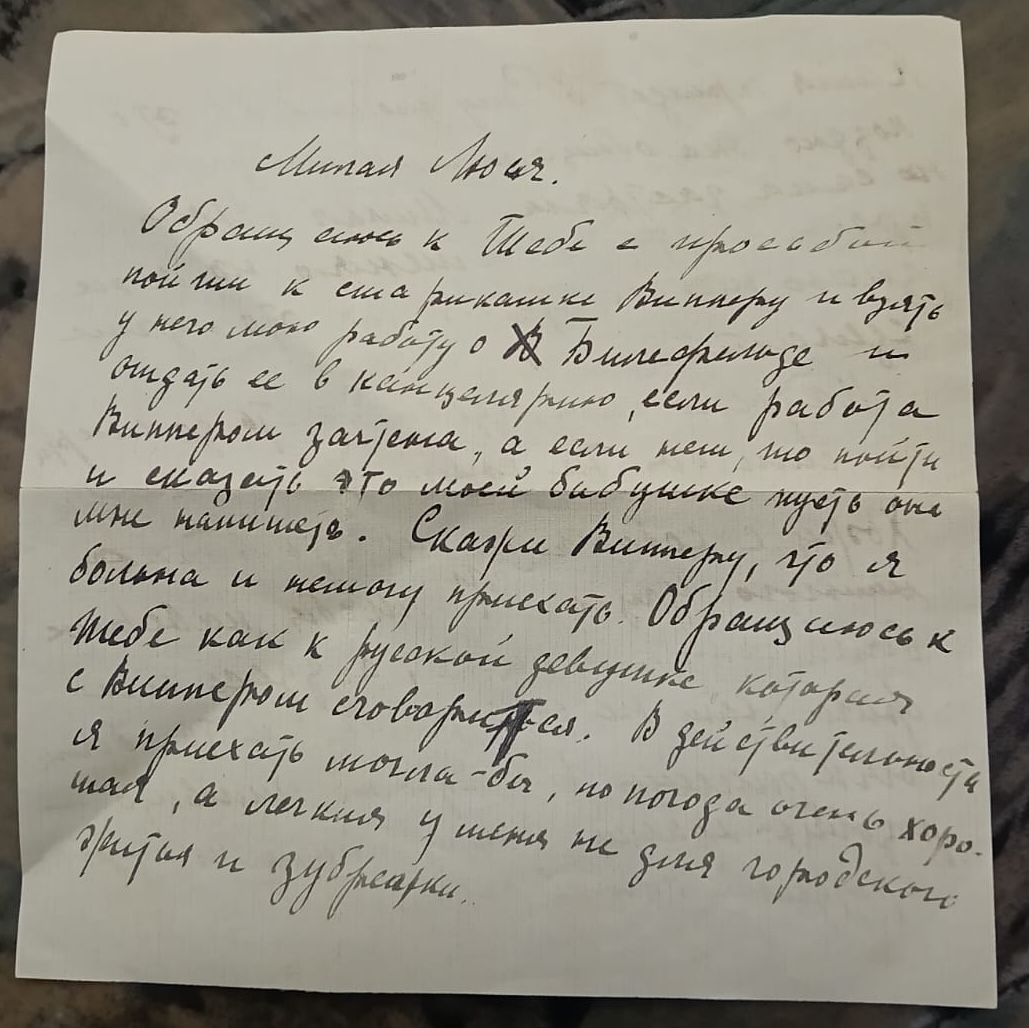 Милая Люся.
Обращаюсь к Тебе с просьбой
пойти к старикашке Випперу и взять
у него мою работу о Билефельде и
отдать ее в канцелярию, если работа
Виппером зачтена, а если нет, то пойти
и сказать это моей бабушке пусть она
мне напишет. Скажи Випперу, что я
больна и немогу приехать. Обращаюсь к
Тебе как к русской девушке, которая
с Виппером сговорится. В действительности
я приехать могла-бы, но погода очень хоро-
шая, а легкия у меня не для городского
житья и зубрежки.